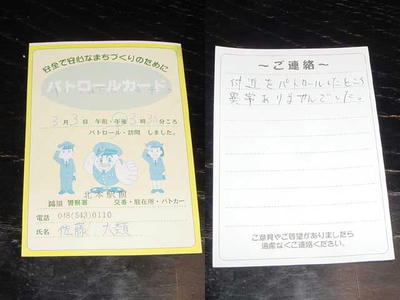 安全で安心なまちづくりのために
パトロールカード
3月3日 午前・午後3時30分ごろ
パトロール・訪問 しました。
北本駅前
鴻巣 警察署 交番・駐在所・パトカー
電話 048(543)0110
氏名 佐藤
～ご連絡～
付近をパトロールしたところ
異常ありませんでした。
ご意見やご要望がありましたら
遠慮なくご連絡ください。